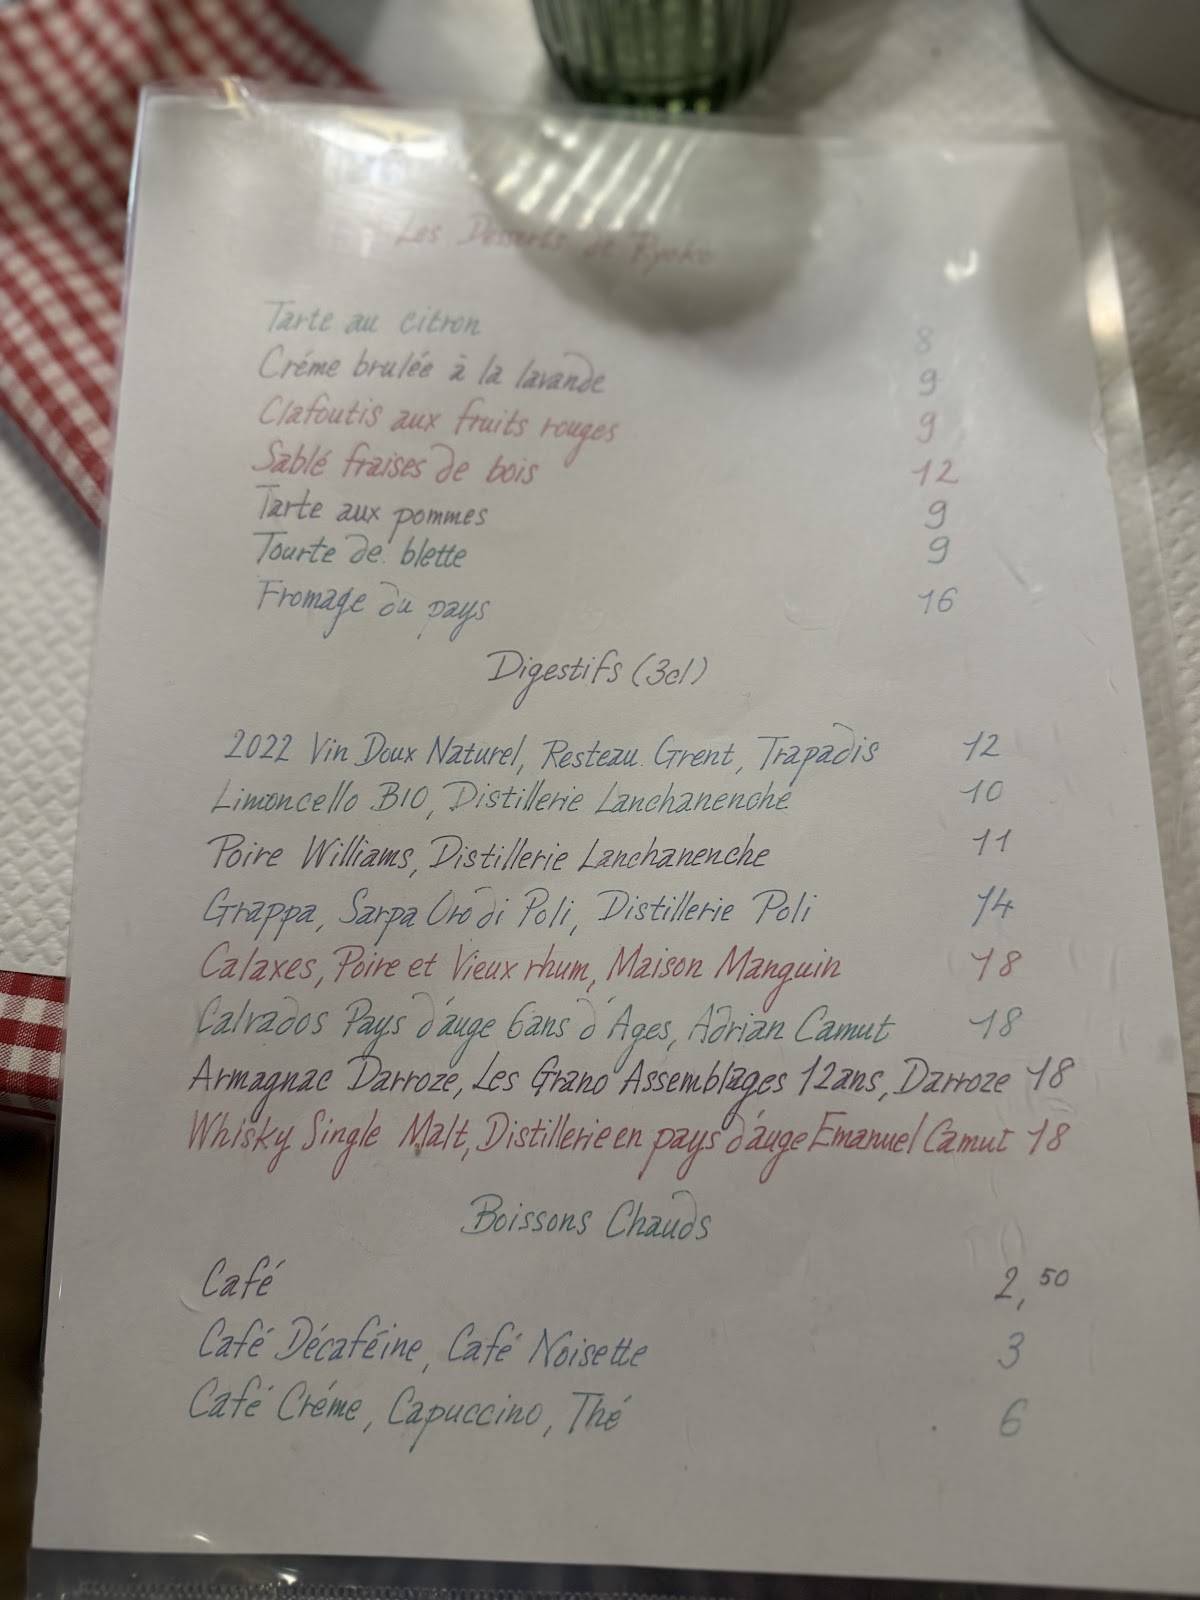 Les Desserts de Ryoko
Tarte au citron 8
Créme brulée à la lavande 9
Clafoutis aux fruits rouges 9
Sablé fraises de bois 12
Tarte aux pommes 9
Tourte de blette 9
Fromage du pays 16
Digestifs (3cl)
2022 Vin Doux Naturel, Resteau Grent, Trapadis 12
Limoncello BIO, Distillerie Lanchanenche 10
Poire Williams, Distillerie Lanchanenche 11
Grappa, Sarpa Oro di Poli, Distillerie Poli 14
Calaxes, Poire et Vieux rhum, Maison Manguin 18
Calvados Pays d'auge 6ans d'Ages, Adrian Camut 18
Armagnac Darroze, Les Grand Assemblages 12ans, Darroze 18
Whisky Single Malt, Distillerie en pays d'auge Emanuel Camut 18
Boissons Chauds
Café 2,50
Café Décaféine, Café Noisette 3
Café Créme, Capuccino, Thé 6